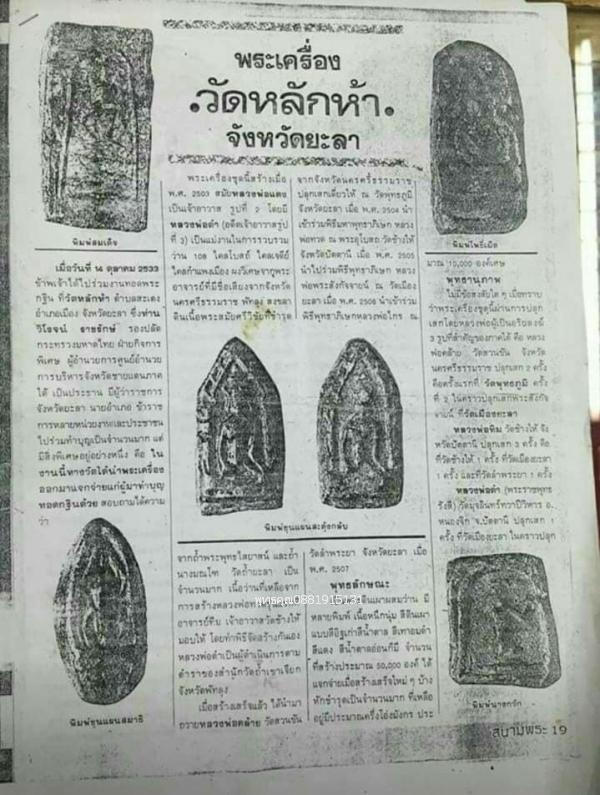 พระเครื่อง
วัดหลักห้า
จังหวัดยะลา
พิมพ์สมเด็จ
เมื่อวันที่ 14 ตุลาคม 2533
ข้าพเจ้าได้ไปร่วมงานทอดพระ
กฐิน ที่วัดหลักห้า ตำบลสะเตง
อำเภอเมือง จังหวัดยะลา ซึ่งท่าน
วิโรจน์ ราชรักษ์ รองปลัด
กระทรวงมหาดไทย ฝ่ายกิจการ
พิเศษ ผู้อำนวยการศูนย์อำนวย
การบริหารจังหวัดชายแดนภาค
ใต้ เป็นประธาน มีผู้ว่าราชการ
จังหวัดยะลา นายอำเภอ ข้าราช
การหลายหน่วยงานและประชาชน
ไปร่วมทำบุญเป็นจำนวนมาก แต่
มีสิ่งพิเศษอยู่อย่างหนึ่ง คือ ใน
งานนี้ทางวัดได้นำพระเครื่อง
ออกมาแจกจ่ายแก่ผู้มาทำบุญ
ทอดกฐินด้วย สอบถามได้ความ
ว่า
พิมพ์ขุนแผนสมาธิ
พระเครื่องชุดนี้สร้างเมื่อ
พ.ศ. 2503 สมัยหลวงพ่อแดง
เป็นเจ้าอาวาส รูปที่ 2 โดยมี
หลวงพ่อดำ (อดีตเจ้าอาวาสรูป
ที่ 3) เป็นแม่งานในการรวบรวม
ว่าน 108 ไคลโบสถ์ ไคลเจดีย์
ไคลกำแพงเมือง ผงวิเศษจากพระ
อาจารย์ที่มีชื่อเสียงจากจังหวัด
นครศรีธรรมราช พัทลุง สงขลา
ดินเนื้อพระสมัยศรีวิชัยที่ชำรุด
พิมพ์ขุนแผนสะดุ้งกลับ
จากถ้ำพระพุทธไสยาสน์ และถ้ำ
นางมณโฑ วัดถ้ำยะลา เป็น
จำนวนมาก เนื้อว่านที่เหลือจาก
การสร้างหลวงพ่อทวด
อาจารย์ทิม เจ้าอาวาสวัดช้างให้
มอบให้ โดยทำพิธีจัดสร้างกันเอง
หลวงพ่อดำเป็นผู้ดำเนินการตาม
ตำราของสำนักวัดถ้ำเขาเจียก
จังหวัดพัทลุง
เมื่อสร้างเสร็จแล้ว ได้นำมา
ถวายหลวงพ่อคล้าย วัดสวนขัน
พุทธคุณ0881915131
จากจังหวัดนครศรีธรรมราช
ปลุกเสกเดี่ยวให้ ณ วัดพุทธภูมิ
จังหวัดยะลา เมื่อ พ.ศ. 2504 นำ
เข้าร่วมพิธีมหาพุทธาภิเษก หลวง
พ่อทวด ณ พระอุโบสถวัดช้างให้
จังหวัดปัตตานี เมื่อ พ.ศ. 2505
นำไปร่วมพิธีพุทธาภิเษก หลวง
พ่อพระสังกัจจายน์ ณ วัดเมือง
ยะลา เมื่อ พ.ศ. 2506 นำเข้าร่วม
พิธีพุทธาภิเษกหลวงพ่อไกร ณ
วัดลำพระยา จังหวัดยะลา เมื่อ
พ.ศ. 2507
พุทธลักษณะ
ดินเผาผสมว่าน มี
หลายพิมพ์ เนื้อหนึกนุ่ม สีดินเผา
แบบสีอิฐเก่าสีน้ำตาล สีเทาอมดำ
สีแดง สีน้ำตาลอ่อนก็มี จำนวน
ที่สร้างประมาณ 50,000 องค์ ได้
แจกจ่ายเมื่อสร้างเสร็จใหม่ ๆ บ้าง
หักชำรุดเป็นจำนวนมาก ที่เหลือ
อยู่มีประมาณครึ่งโอ่งมังกร ประ
พิมพ์โพธิ์เม็ด
มาณ 10,000 องค์เศษ
พุทธานุภาพ
ไม่มีข้อสงสัยใด ๆ เมื่อทราบ
ว่าพระเครื่องชุดนี้ผ่านการปลุก
เสกโดยหลวงพ่อผู้เป็นอริยสงฆ์
3 รูปที่สำคัญของภาคใต้ คือ หลวง
พ่อคล้าย วัดสวนขัน จังหวัด
นครศรีธรรมราช ปลุกเสก 2 ครั้ง
คือครั้งแรกที่ วัดพุทธภูมิ ครั้ง
ที่ 2 ในคราวปลุกเสกพระสังกัจ
จายน์ ที่วัดเมืองยะลา
หลวงพ่อทิม วัดช้างให้ จัง
หวัดปัตตานี ปลุกเสก 3 ครั้ง คือ
ที่วัดช้างให้ 1 ครั้ง ที่วัดเมืองยะลา
1 ครั้ง และที่วัดลำพระยา 1 ครั้ง
หลวงพ่อดำ (พระราชพุทธ
รังสี) วัดมุจลินทวาปีวิหาร อ.
หนองจิก จ.ปัตตานี ปลุกเสก 1
ครั้ง ที่วัดเมืองยะลา ในคราวปลุก
พิมพ์นางกวัก
สนามพระ 19